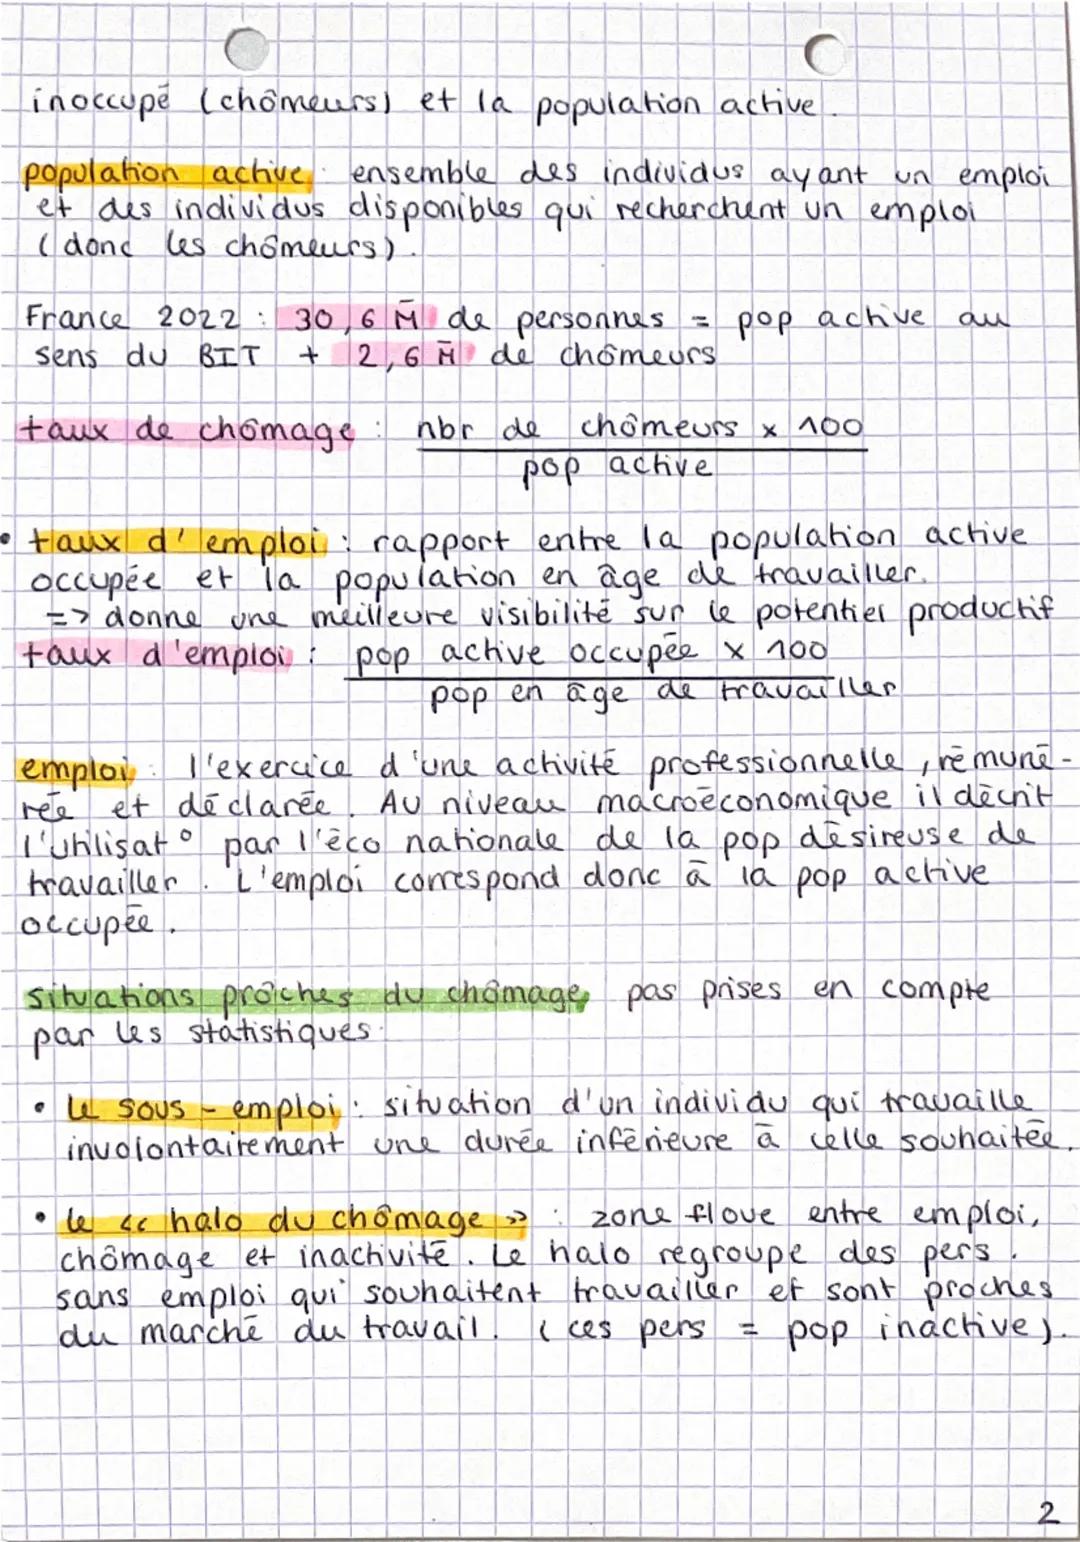 inoccupé (chômeurs) et la population active.
population active : ensemble des individus ayant un emploi
et des individus disponibles qui recherchent un emploi
(donc les chômeurs).
France 2022 : 30,6 M̄ de personnes = pop active au
sens du BIT + 2,6 M̄ de chômeurs
taux de chômage : nbr de chômeurs x 100
pop active
• taux d'emploi : rapport entre la population active
occupée et la population en âge de travailler.
=> donne une meilleure visibilité sur le potentiel productif
taux d'emploi : pop active occupée x 100
pop en âge de travailler
emploi : l'exercice d'une activité professionnelle, rémuné-
rée et déclarée. Au niveau macroéconomique il décrit
l'utilisat° par l'éco nationale de la pop désireuse de
travailler. L'emploi correspond donc à la pop active
occupée.
situations proches du chômage, pas prises en compte
par les statistiques.
• le sous-emploi : situation d'un individu qui travaille
involontairement une durée inférieure à celle souhaitée.
• le << halo du chômage >> : zone floue entre emploi,
chômage et inactivité. Le halo regroupe des pers.
sans emploi qui souhaitent travailler et sont proches
du marché du travail. (ces pers = pop inactive).
2